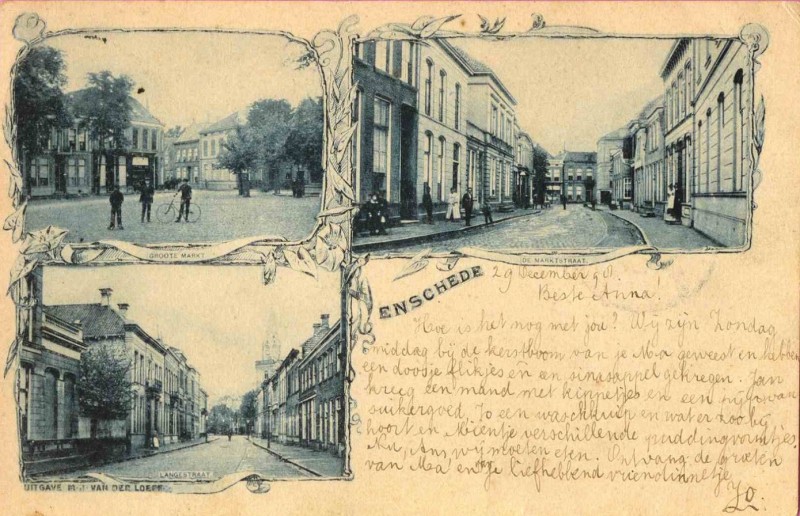 GROOTE MARKT
DE MARKTSTRAAT.
LANGESTRAAT.
UITGAVE M. J. VAN DER LOEFF.
ENSCHEDE
29 December 98.
Beste Anna!
Hoe is het nog met jou? Wij zijn Zondag
middag bij de kerstboom van je Ma geweest en hebben
een doosje flikjes en een sinasappel gekregen. Jan
kreeg een mand met kippetjes en een van
suikergoed. Jo een waschkuip en water zoo bij
hoort en Mientje verschillende puddingvormtjes.
Nu Ans wij moeten eten. Ontvang de groeten
van Ma en je liefhebbend vriendinnetje
Jo.